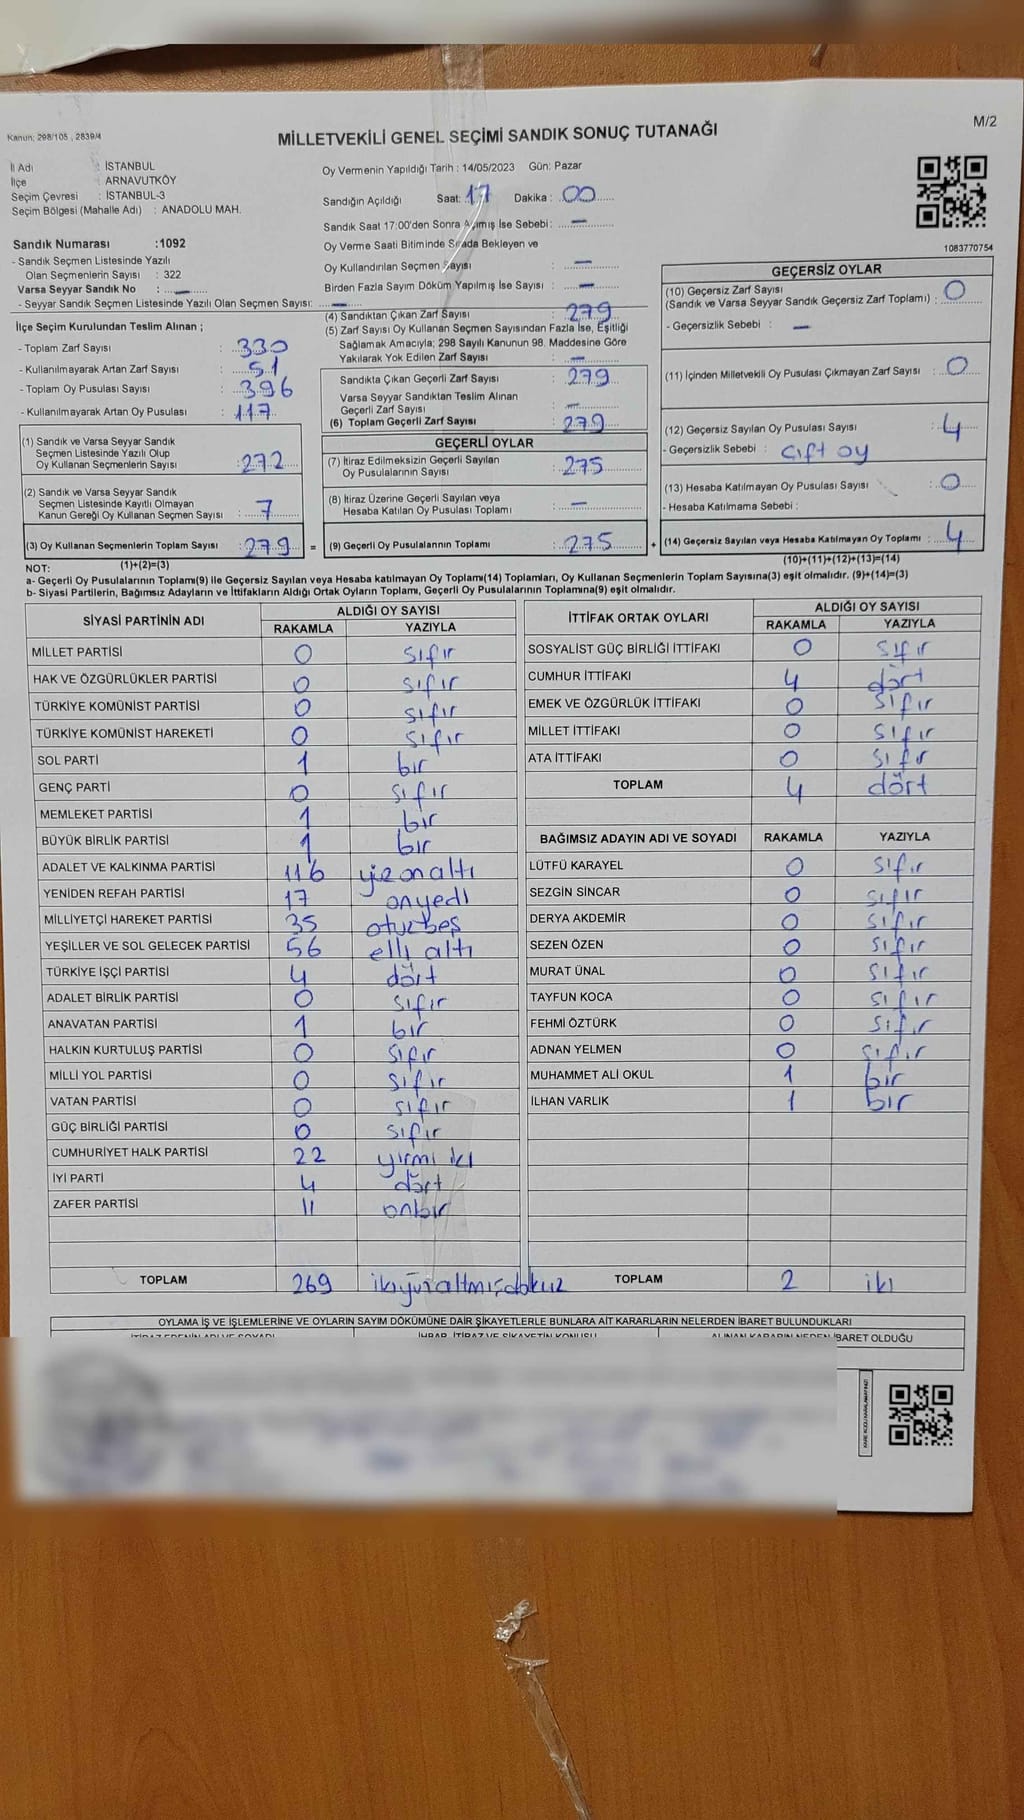 M/2
Kanun: 298/105 , 2839/4
MİLLETVEKİLİ GENEL SEÇİMİ SANDIK SONUÇ TUTANAĞI
İl Adı : İSTANBUL
İlçe : ARNAVUTKÖY
Seçim Çevresi : İSTANBUL-3
Seçim Bölgesi (Mahalle Adı) : ANADOLU MAH.
Sandık Numarası :1092
- Sandık Seçmen Listesinde Yazılı
Olan Seçmenlerin Sayısı : 322
Varsa Seyyar Sandık No : —
- Seyyar Sandık Seçmen Listesinde Yazılı Olan Seçmen Sayısı: —
İlçe Seçim Kurulundan Teslim Alınan ;
- Toplam Zarf Sayısı : 330
- Kullanılmayarak Artan Zarf Sayısı : 51
- Toplam Oy Pusulası Sayısı : 396
- Kullanılmayarak Artan Oy Pusulası : 117
(1) Sandık ve Varsa Seyyar Sandık
Seçmen Listesinde Yazılı Olup
Oy Kullanan Seçmenlerin Sayısı : 272
(2) Sandık ve Varsa Seyyar Sandık
Seçmen Listesinde Kayıtlı Olmayan
Kanun Gereği Oy Kullanan Seçmen Sayısı : 7
(3) Oy Kullanan Seçmenlerin Toplam Sayısı : 279 =
(1)+(2)=(3)
Oy Vermenin Yapıldığı Tarih : 14/05/2023 Gün: Pazar
Sandığın Açıldığı Saat: 17 Dakika : 00
Sandık Saat 17:00'den Sonra Açılmış İse Sebebi: —
Oy Verme Saati Bitiminde Sırada Bekleyen ve
Oy Kullandırılan Seçmen Sayısı : —
Birden Fazla Sayım Döküm Yapılmış İse Sayısı : —
(4) Sandıktan Çıkan Zarf Sayısı : 279
(5) Zarf Sayısı Oy Kullanan Seçmen Sayısından Fazla İse, Eşitliği
Sağlamak Amacıyla; 298 Sayılı Kanunun 98. Maddesine Göre
Yakılarak Yok Edilen Zarf Sayısı : —
Sandıkta Çıkan Geçerli Zarf Sayısı : 279
Varsa Seyyar Sandıktan Teslim Alınan
Geçerli Zarf Sayısı : —
(6) Toplam Geçerli Zarf Sayısı : 279
GEÇERLİ OYLAR
(7) İtiraz Edilmeksizin Geçerli Sayılan
Oy Pusulalarının Sayısı : 275
(8) İtiraz Üzerine Geçerli Sayılan veya
Hesaba Katılan Oy Pusulaları Toplamı : —
(9) Geçerli Oy Pusulalarının Toplamı : 275 +
1083770754
GEÇERSİZ OYLAR
(10) Geçersiz Zarf Sayısı
(Sandık ve Varsa Seyyar Sandık Geçersiz Zarf Toplamı) : 0
- Geçersizlik Sebebi : —
(11) İçinden Milletvekili Oy Pusulası Çıkmayan Zarf Sayısı : 0
(12) Geçersiz Sayılan Oy Pusulası Sayısı : 4
- Geçersizlik Sebebi : çift oy
(13) Hesaba Katılmayan Oy Pusulası Sayısı : 0
- Hesaba Katılmama Sebebi :
(14) Geçersiz Sayılan veya Hesaba Katılmayan Oy Toplamı : 4
(10)+(11)+(12)+(13)=(14)
NOT:
a- Geçerli Oy Pusulalarının Toplamı(9) ile Geçersiz Sayılan veya Hesaba katılmayan Oy Toplamı(14) Toplamları, Oy Kullanan Seçmenlerin Toplam Sayısına(3) eşit olmalıdır. (9)+(14)=(3)
b- Siyasi Partilerin, Bağımsız Adayların ve İttifakların Aldığı Ortak Oyların Toplamı, Geçerli Oy Pusulalarının Toplamına(9) eşit olmalıdır.
SİYASİ PARTİNİN ADI ALDIĞI OY SAYISI
RAKAMLA YAZIYLA
MİLLET PARTİSİ 0 sıfır
HAK VE ÖZGÜRLÜKLER PARTİSİ 0 sıfır
TÜRKİYE KOMÜNİST PARTİSİ 0 sıfır
TÜRKİYE KOMÜNİST HAREKETİ 0 sıfır
SOL PARTİ 1 bir
GENÇ PARTİ 0 sıfır
MEMLEKET PARTİSİ 1 bir
BÜYÜK BİRLİK PARTİSİ 1 bir
ADALET VE KALKINMA PARTİSİ 116 yüzonaltı
YENİDEN REFAH PARTİSİ 17 onyedi
MİLLİYETÇİ HAREKET PARTİSİ 35 otuzbeş
YEŞİLLER VE SOL GELECEK PARTİSİ 56 elli altı
TÜRKİYE İŞÇİ PARTİSİ 4 dört
ADALET BİRLİK PARTİSİ 0 sıfır
ANAVATAN PARTİSİ 1 bir
HALKIN KURTULUŞ PARTİSİ 0 sıfır
MİLLİ YOL PARTİSİ 0 sıfır
VATAN PARTİSİ 0 sıfır
GÜÇ BİRLİĞİ PARTİSİ 0 sıfır
CUMHURİYET HALK PARTİSİ 22 yirmi iki
İYİ PARTİ 4 dört
ZAFER PARTİSİ 11 onbir
TOPLAM 269 ikiyüzaltmışdokuz
İTTİFAK ORTAK OYLARI ALDIĞI OY SAYISI
RAKAMLA YAZIYLA
SOSYALİST GÜÇ BİRLİĞİ İTTİFAKI 0 sıfır
CUMHUR İTTİFAKI 4 dört
EMEK VE ÖZGÜRLÜK İTTİFAKI 0 sıfır
MİLLET İTTİFAKI 0 sıfır
ATA İTTİFAKI 0 sıfır
TOPLAM 4 dört
BAĞIMSIZ ADAYIN ADI VE SOYADI RAKAMLA YAZIYLA
LÜTFÜ KARAYEL 0 sıfır
SEZGİN SİNCAR 0 sıfır
DERYA AKDEMİR 0 sıfır
SEZEN ÖZEN 0 sıfır
MURAT ÜNAL 0 sıfır
TAYFUN KOCA 0 sıfır
FEHMİ ÖZTÜRK 0 sıfır
ADNAN YELMEN 0 sıfır
MUHAMMET ALİ OKUL 1 bir
İLHAN VARLIK 1 bir
TOPLAM 2 iki
OYLAMA İŞ VE İŞLEMLERİNE VE OYLARIN SAYIM DÖKÜMÜNE DAİR ŞİKAYETLERLE BUNLARA AİT KARARLARIN NELERDEN İBARET BULUNDUKLARI
İTİRAZ EDENİN ADI VE SOYADI İHBAR, İTİRAZ VE ŞİKAYETİN KONUSU ALINAN KARARIN NEDEN İBARET OLDUĞU